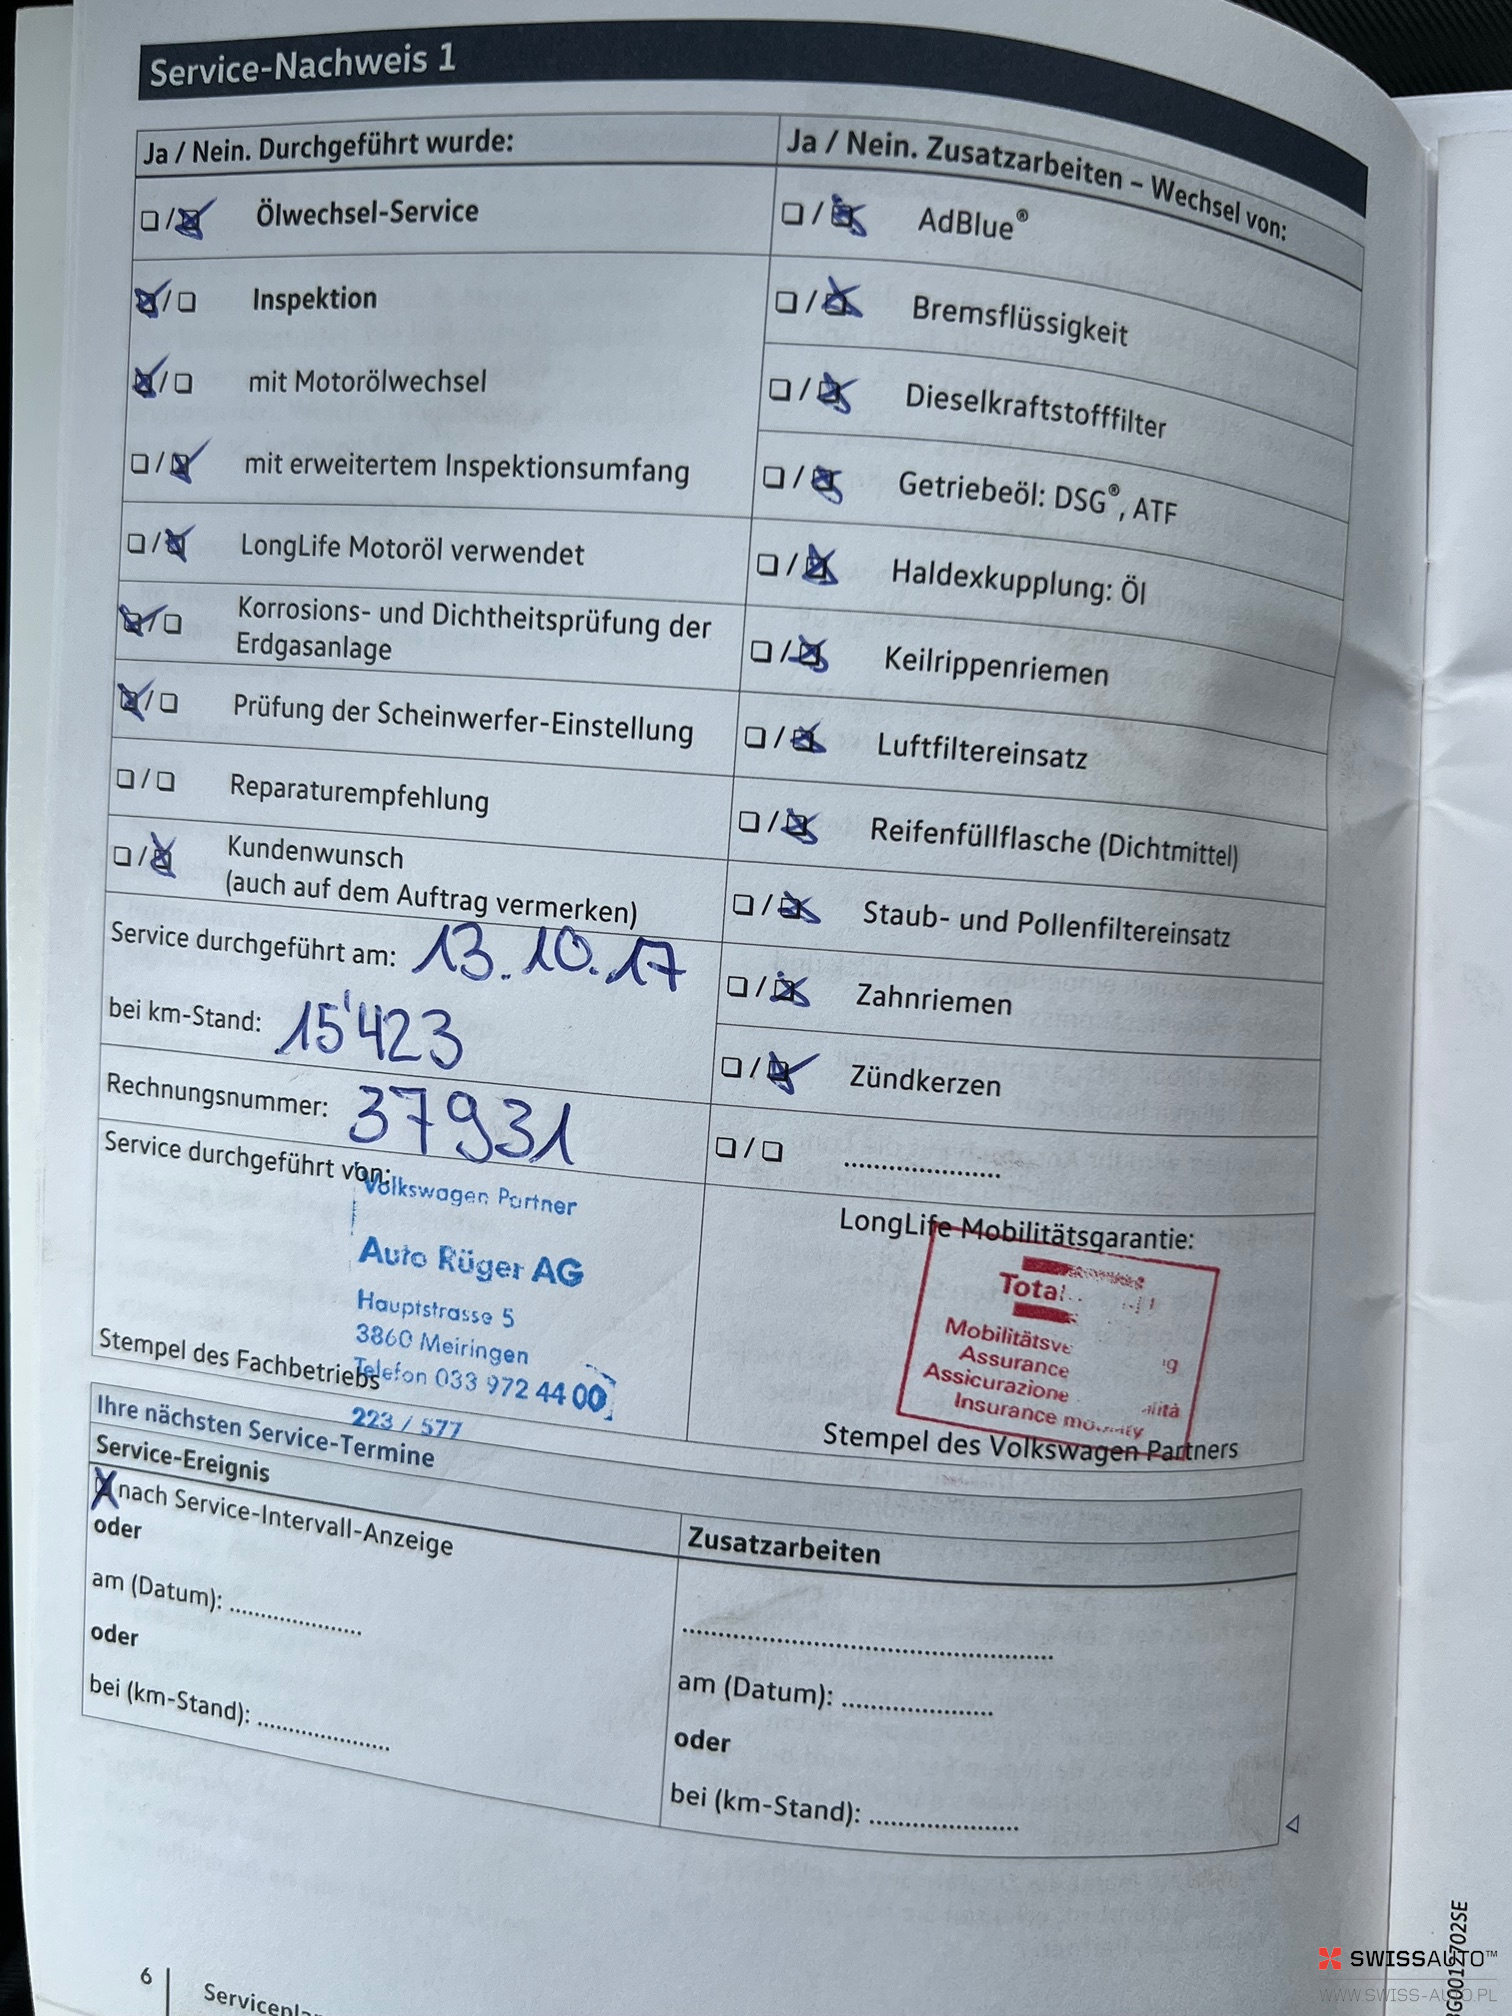 Service-Nachweis 1
Ja / Nein. Durchgeführt wurde:
☐/☒ Ölwechsel-Service
☒/☐ Inspektion
☒/☐ mit Motorölwechsel
☐/☒ mit erweitertem Inspektionsumfang
☐/☒ LongLife Motoröl verwendet
☒/☐ Korrosions- und Dichtheitsprüfung der
Erdgasanlage
☒/☐ Prüfung der Scheinwerfer-Einstellung
☐/☐ Reparaturempfehlung
☐/☒ Kundenwunsch
(auch auf dem Auftrag vermerken)
Service durchgeführt am: 13.10.17
bei km-Stand: 15'423
Rechnungsnummer: 37931
Service durchgeführt von:
Volkswagen Partner
Auto Rüger AG
Hauptstrasse 5
3860 Meiringen
Telefon 033 972 44 00
223 / 577
Stempel des Fachbetriebs
Ja / Nein. Zusatzarbeiten – Wechsel von:
☐/☒ AdBlue®
☐/☒ Bremsflüssigkeit
☐/☒ Dieselkraftstofffilter
☐/☒ Getriebeöl: DSG®, ATF
☐/☒ Haldexkupplung: Öl
☐/☒ Keilrippenriemen
☐/☒ Luftfiltereinsatz
☐/☒ Reifenfüllflasche (Dichtmittel)
☐/☒ Staub- und Pollenfiltereinsatz
☐/☒ Zahnriemen
☐/☒ Zündkerzen
☐/☐ ......................
LongLife Mobilitätsgarantie:
Assurance
Assicurazione
Insurance
Stempel des Volkswagen Partners
Ihre nächsten Service-Termine
Service-Ereignis
☒ nach Service-Intervall-Anzeige
oder
am (Datum): ..................
oder
bei (km-Stand): ..................
Zusatzarbeiten
..................................................
am (Datum): ....................
oder
bei (km-Stand): ....................
6
SWISSAUTO™
WWW.SWISS-AUTO.PL